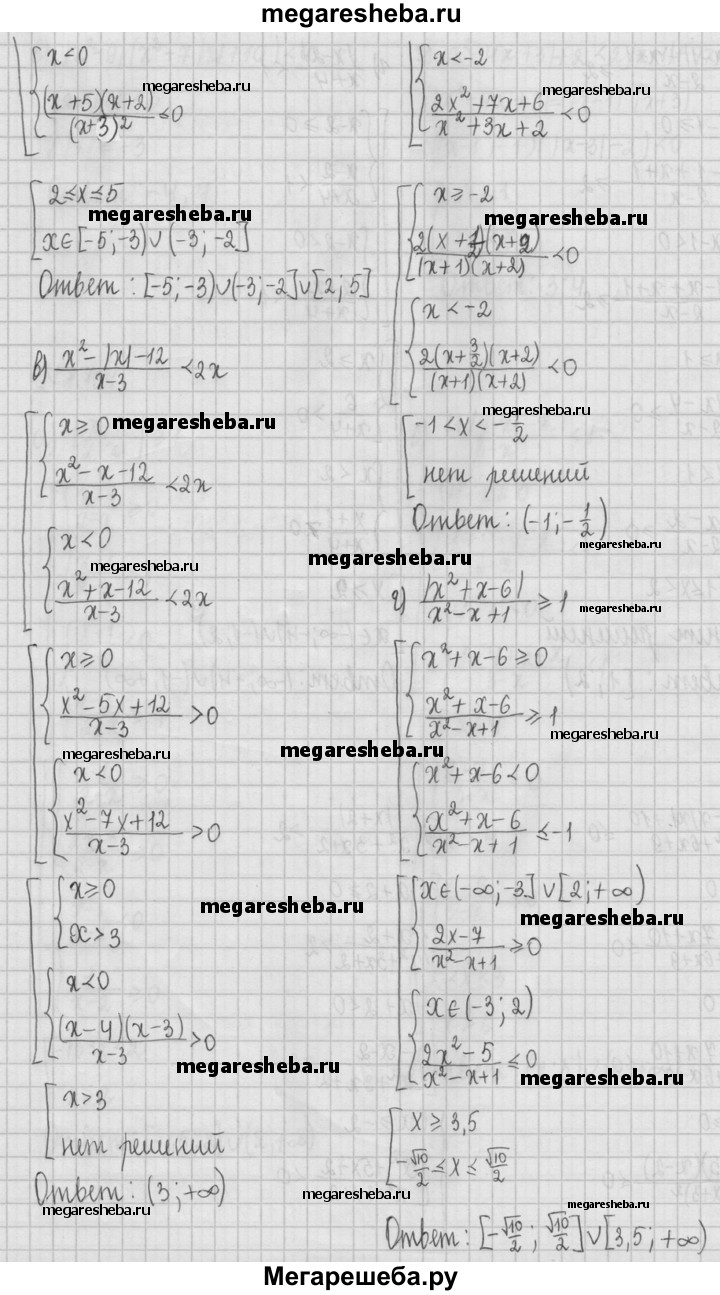 megaresheba.ru
x<0
megaresheba.ru
(x+5)(x+2)/(x+3)² ≤0
2≤x≤5
megaresheba.ru
x∈[-5;-3)∪(-3;-2]
Ответ: [-5;-3)∪(-3;-2]∪[2;5]
в) (x²-|x|-12)/(x-3) <2x
x≥0 megaresheba.ru
(x²-x-12)/(x-3) <2x
x<0
megaresheba.ru
(x²+x-12)/(x-3) <2x
x≥0
(x²-5x+12)/(x-3) >0
megaresheba.ru
x<0
(x²-7x+12)/(x-3) >0
x≥0
megaresheba.ru
x>3
x<0
(x-4)(x-3)/(x-3) >0
megaresheba.ru
x>3
нет решений
Ответ: (3;+∞)
megaresheba.ru
x<-2
megaresheba.ru
(2x²+7x+6)/(x²+3x+2) <0
x≥-2
megaresheba.ru
(x+2)/((x+1)(x+2)) <0
x<-2
2(x+3/2)(x+2)/((x+1)(x+2)) <0
megaresheba.ru
-1<x<-1/2
нет решений
Ответ: (-1;-1/2)
megaresheba.ru
megaresheba.ru
г) |x²+x-6|/(x²-x+1) ≥1
megaresheba.ru
x²+x-6≥0
(x²+x-6)/(x²-x+1) ≥1
megaresheba.ru
megaresheba.ru
x²+x-6<0
(x²+x-6)/(x²-x+1) ≤-1
x∈(-∞;-3]∪[2;+∞)
megaresheba.ru
(2x-7)/(x²-x+1) ≥0
x∈(-3;2)
(2x²-5)/(x²-x+1) ≤0
megaresheba.ru
x≥3,5
-√10/2≤x≤√10/2
megaresheba.ru
Ответ: [-√10/2;√10/2]∪[3,5;+∞)
Мегарешеба.ру